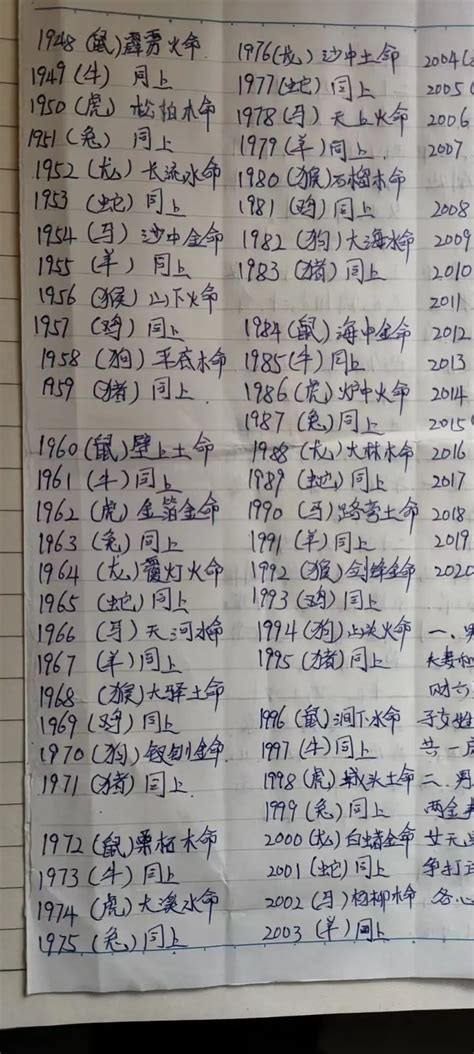 1948 (鼠) 霹雳火命
1949 (牛) 同上
1950 (虎) 松柏木命
1951 (兔) 同上
1952 (龙) 长流水命
1953 (蛇) 同上
1954 (马) 沙中金命
1955 (羊) 同上
1956 (猴) 山下火命
1957 (鸡) 同上
1958 (狗) 平底木命
1959 (猪) 同上
1960 (鼠) 壁上土命
1961 (牛) 同上
1962 (虎) 金箔金命
1963 (兔) 同上
1964 (龙) 覆灯火命
1965 (蛇) 同上
1966 (马) 天河水命
1967 (羊) 同上
1968 (猴) 大驿土命
1969 (鸡) 同上
1970 (狗) 钗钏金命
1971 (猪) 同上
1972 (鼠) 栗柘木命
1973 (牛) 同上
1974 (虎) 大溪水命
1975 (兔) 同上
1976 (龙) 沙中土命
1977 (蛇) 同上
1978 (马) 天上火命
1979 (羊) 同上
1980 (猴) 石榴木命
1981 (鸡) 同上
1982 (狗) 大海水命
1983 (猪) 同上
1984 (鼠) 海中金命
1985 (牛) 同上
1986 (虎) 炉中火命
1987 (兔) 同上
1988 (龙) 大林木命
1989 (蛇) 同上
1990 (马) 路旁土命
1991 (羊) 同上
1992 (猴) 剑锋金命
1993 (鸡) 同上
1994 (狗) 山头火命
1995 (猪) 同上
1996 (鼠) 涧下水命
1997 (牛) 同上
1998 (虎) 城头土命
1999 (兔) 同上
2000 (龙) 白蜡金命
2001 (蛇) 同上
2002 (马) 杨柳木命
2003 (羊) 同上
2004 (
2005 (
2006
2007
2008
2009
2010
2011
2012
2013
2014
2015
2016
2017
2018
2019
2020
一、男
夫妻和
财六
子女姓
共一
二、男
两金
女元
争打
各心